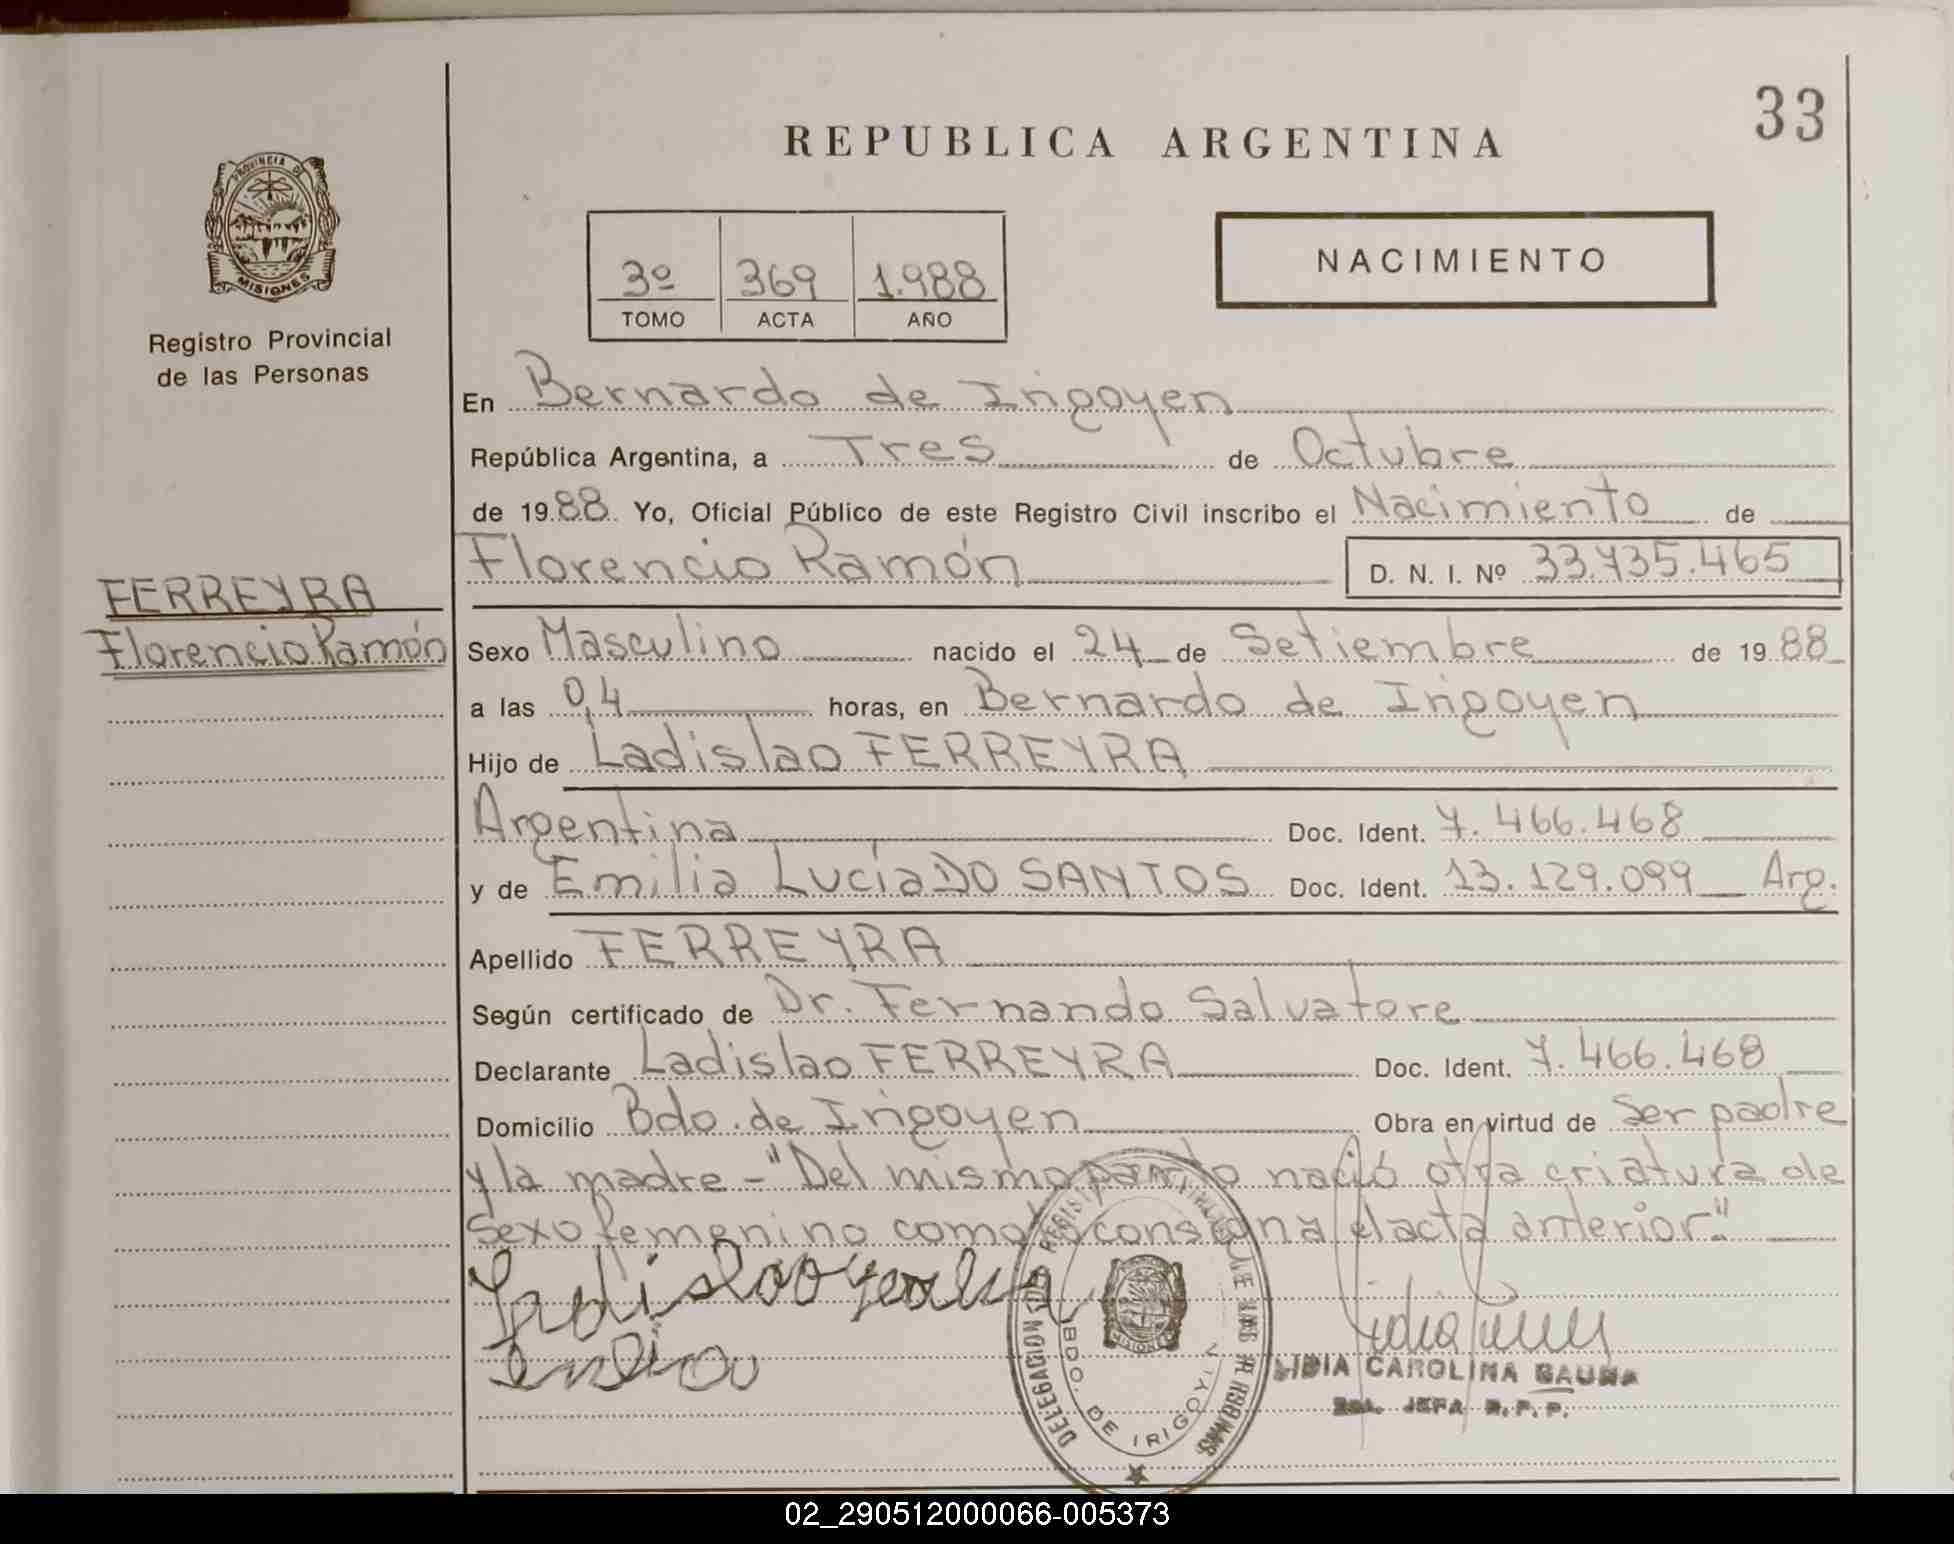 33
REPUBLICA ARGENTINA
PROVINCIA DE
MISIONES
Registro Provincial
de las Personas
3º 369 1.988
TOMO ACTA AÑO
NACIMIENTO
En Bernardo de Irigoyen
República Argentina, a Tres de Octubre
de 1988 Yo, Oficial Público de este Registro Civil inscribo el Nacimiento de
Florencio Ramón D. N. I. Nº 33.735.465
FERREYRA
Florencio Ramón
Sexo Masculino nacido el 24 de Setiembre de 1988
a las 0,4 horas, en Bernardo de Irigoyen
Hijo de Ladislao FERREYRA
Argentina Doc. Ident. 7.466.468
y de Emilia Lucía DO SANTOS Doc. Ident. 13.129.099 Arg.
Apellido FERREYRA
Según certificado de Dr. Fernando Salvatore
Declarante Ladislao FERREYRA Doc. Ident. 7.466.468
Domicilio Bdo. de Irigoyen Obra en virtud de Ser padre
y la madre - "Del mismo parto nació otra criatura de
sexo femenino como lo consigna el acta anterior."
DELEGACION DEL REGISTRO PROVINCIAL DE LAS PERSONAS
BDO. DE IRIGOYEN
LIDIA CAROLINA
JEFA R. P. P.
02_290512000066-005373